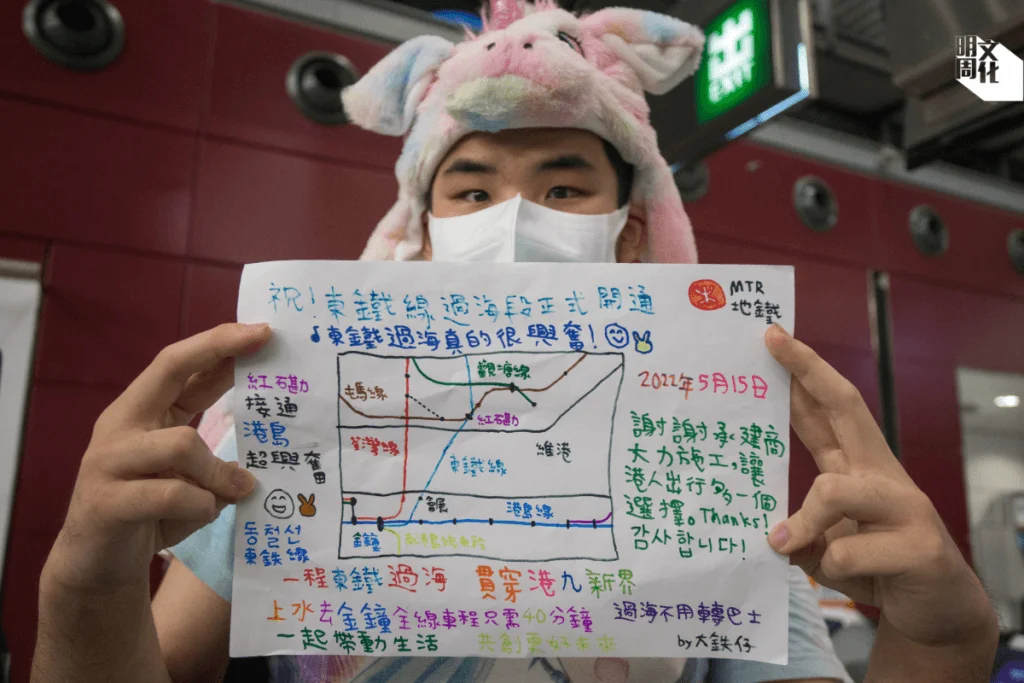 明周文化
出
EXIT
祝!東鐵線過海段正式開通
MTR
地鐵
♩東鐵過海真的很興奮!
2022年5月15日
紅石磡
接通
港島
超興奮
동철선
東鉄線
屯馬線
觀塘線
紅石磡
荃灣線
東鐵線
維港
港島線
金鐘
謝謝承建商
大力施工,讓
港人出行多一個
選擇。Thanks!
감사합니다!
一程東鐵過海 貫穿港九新界
上水去金鐘全線車程只需40分鐘
過海不用轉巴士
一起帶動生活 共創更好未來
by大鉄仔